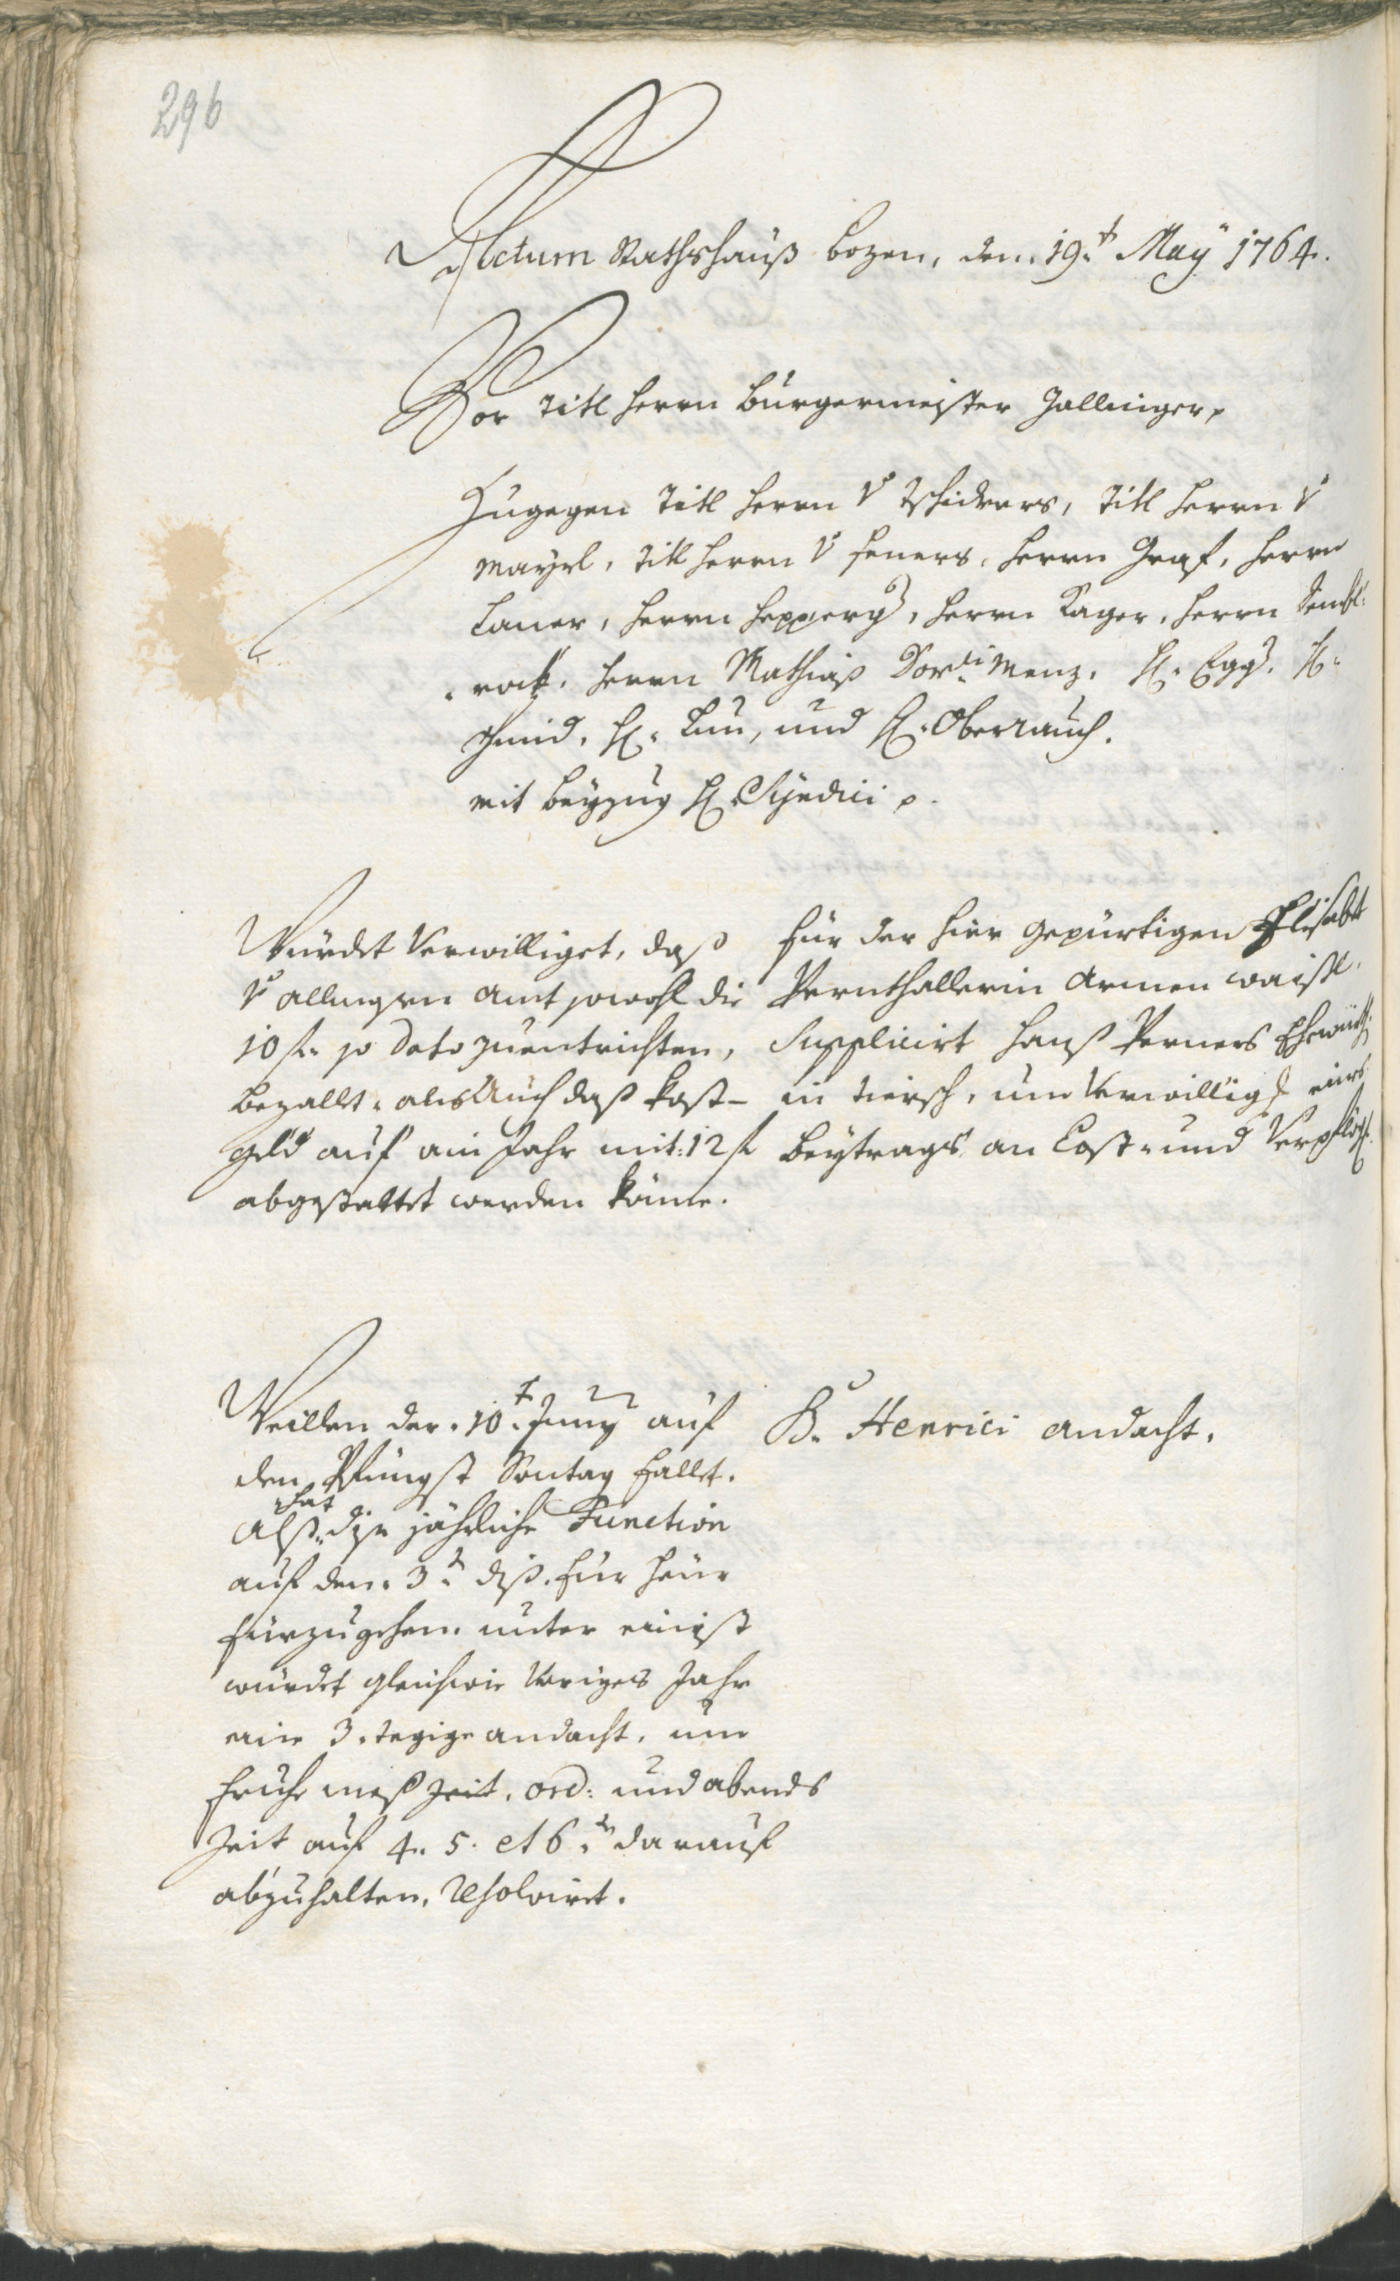 296
Actum Rathshauß Bozen, den 19.t May 1764.
Vor Titl Herrn Burgermeister Zallinger,
Zugegen Titl Herrn v Tschiderers, Titl Herrn v
Mayrl, Titl Herrn v Heners, Herrn Graf, Herrn
Laner, Herrn Hepperg, Herrn Kager, Herrn
rock, Herrn Mathias Menz, H. Egg, H.
Schmid, H. Lun, und H. Oberrauch.
mit Beyzug H. Syndici p.
Würdet Verwilliget, daß
v allmosen Amt sowohl die
10 fl. so dato zuentrichten,
bezallt, als auch daß kost-
geld auf ain Jahr mit 12 fl
abgestattet werden könne.
Für der hier gepürtigen Elisabet
Pernthallerin Armen waißl,
Supplicirt Hanß Perners Ehewürth:
in tiersch, um Verwilligg eines
beytrags an Cost- und Verpflög.
Weillen der 10.t Juny auf
den Pfingst Sontag fallet.
Alß hat dise jährliche Function
auf den 3.t diß. für heur
fürzugehen. unter einist
würdet gleichwie voriges Jahr
eine 3. tegige andacht, um
fruhe meß zeit, ord: und abends
Zeit auf 4. 5. et 6.tn darauf
abzuhalten, resolvirt.
B. Henrici andacht.